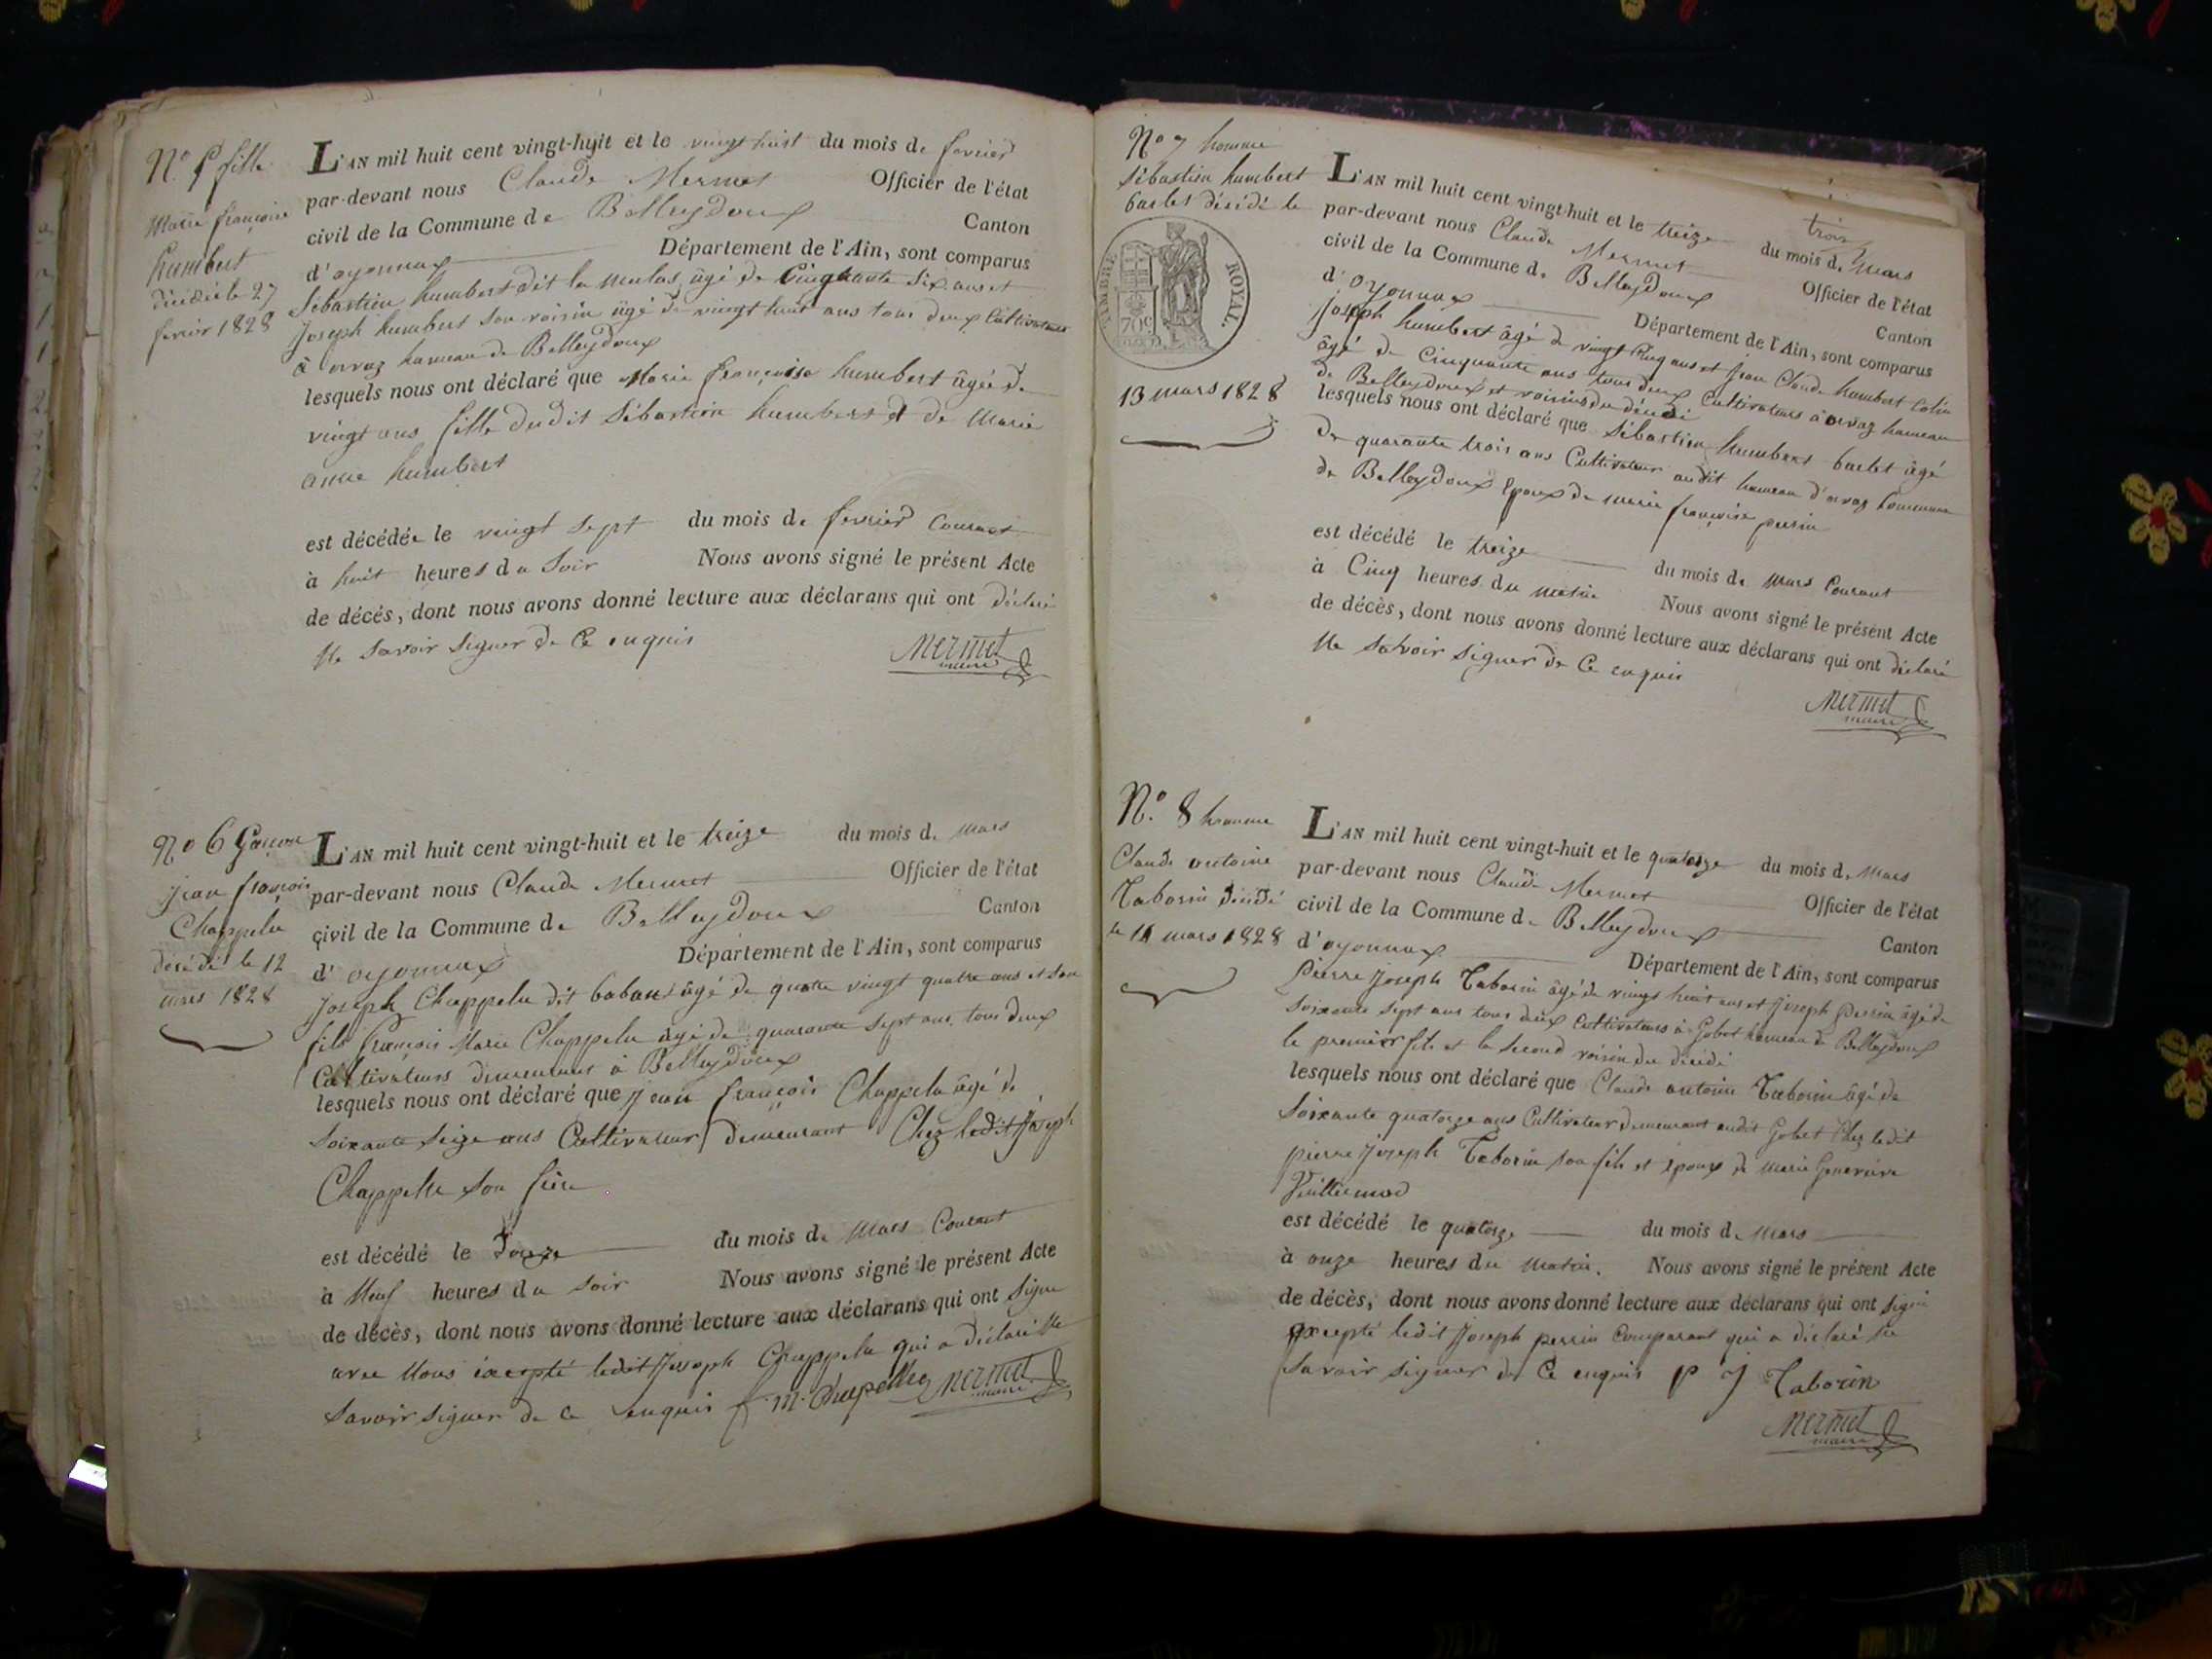 N.º 5 fille
Marie françoise
humbert
décédée le 27
fevrier 1828
L'AN mil huit cent vingt-huit et le vingt huit du mois de fevrier
par-devant nous Claude Mermet Officier de l'état
civil de la Commune de Belleydoux Canton
d'oyonnax Département de l'Ain, sont comparus
Sébastien humbert dit la mulas âgé de Cinquante Six ans et
Joseph humbert son voisin âgé de vingt huit ans tous deux Cultivateurs
à orvaz hameau de Belleydoux
lesquels nous ont déclaré que Marie françoise humbert âgée de
vingt ans fille dudit Sébastien humbert et de Marie
anne humbert
est décédée le vingt sept du mois de fevrier Courant
à huit heures du Soir Nous avons signé le présent Acte
de décés, dont nous avons donné lecture aux déclarans qui ont déclaré
Ne Savoir Signer de Ce enquis Mermet
maire
Nº 6 Garçon
Jean françois
Chappelu
décédé le 12
mars 1828
L'AN mil huit cent vingt-huit et le treize du mois de mars
par-devant nous Claude Mermet Officier de l'état
civil de la Commune de Belleydoux Canton
d'oyonnax Département de l'Ain, sont comparus
Joseph Chappelu dit baban âgé de quatre vingt quatre ans et son
fils françois Marie Chappelu âgé de quarante sept ans tous deux
Cultivateurs demeurant à Belleydoux
lesquels nous ont déclaré que Jean françois Chappelu âgé de
Soixante Seize ans Cultivateur demeurant Chez ledit Joseph
Chappellu Son frère
est décédé le douze du mois de Mars Courant
à Neuf heures du Soir Nous avons signé le présent Acte
de décès, dont nous avons donné lecture aux déclarans qui ont Signé
avec Nous éxcepté ledit Joseph Chappelu qui a déclaré Ne
Savoir Signer de Ce enquis f. m. Chapellu Mermet
maire
Nº 7 homme
Sébastien humbert
barlet décédé le
TIMBRE ROYAL.
70c
13 mars 1828
L'AN mil huit cent vingt-huit et le treize du mois de mars
trois
par-devant nous Claude Mermet Officier de l'état
civil de la Commune de Belleydoux Canton
d'Oyonnax Département de l'Ain, sont comparus
Joseph humbert âgé de vingt Cinq ans et Jean Claude humbert Colin
âgé de Cinquante ans tous deux Cultivateurs à orvaz hameau
de Belleydoux et voisins du décédé
lesquels nous ont déclaré que Sébastien humbert barlet âgé
de quarante trois ans Cultivateur audit hameau d'orvaz Commune
de Belleydoux Epoux de marie françoise perrin
est décédé le treize du mois de Mars Courant
à Cinq heures du matin Nous avons signé le présent Acte
de décès, dont nous avons donné lecture aux déclarans qui ont déclaré
Ne Savoir Signer de Ce enquis
Mermet
maire
N.º 8 homme
Claude antoine
Taborin décédé
le 14 mars 1828
L'AN mil huit cent vingt-huit et le quatorze du mois de Mars
par-devant nous Claude Mermet Officier de l'état
civil de la Commune de Belleydoux Canton
d'oyonnax Département de l'Ain, sont comparus
Pierre Joseph Taborin âgé de vingt huit ans et Joseph Perrin âgé de
Soixante Sept ans tous deux Cultivateurs à Gobet hameau de Belleydoux
le premier fils et le Second voisin du décédé
lesquels nous ont déclaré que Claude antoine Taborin âgé de
Soixante quatorze ans Cultivateur demeurant audit Gobet Chez ledit
pierre Joseph Taborin Son fils et Epoux de Marie Genevieve
Vuillermod
est décédé le quatorze du mois de Mars
à onze heures du Matin. Nous avons signé le présent Acte
de décès, dont nous avons donné lecture aux déclarans qui ont Signé
excepté ledit Joseph perrin Comparant qui a déclaré Ne
Savoir Signer de Ce enquis P J Taborin
Mermet
maire